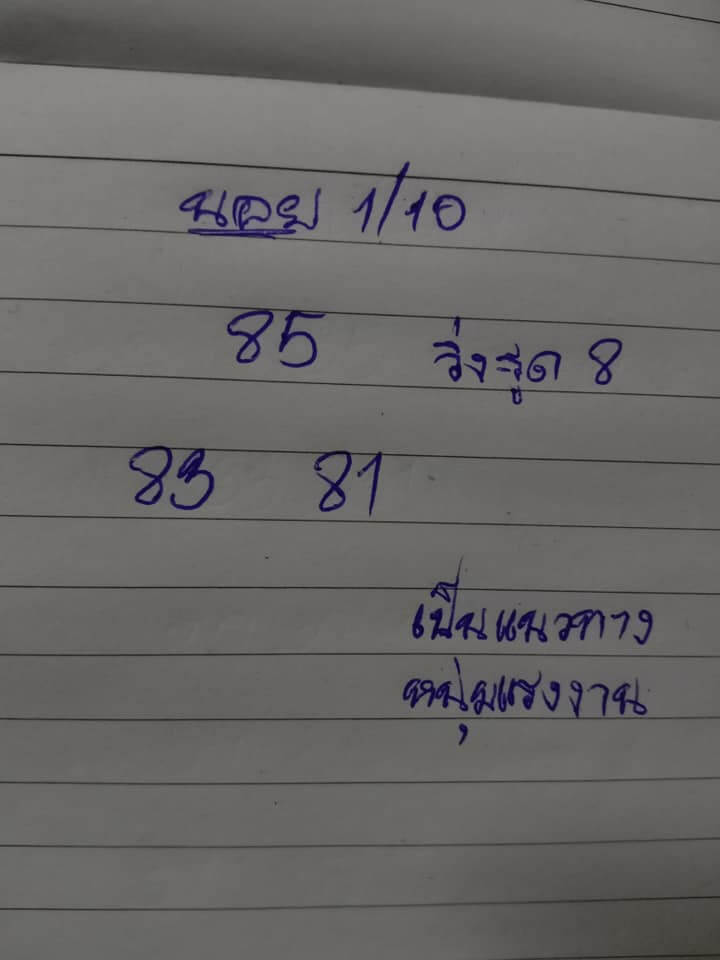 นอย 1/10
85 วิ่งรูด 8
83 81
เป็นแนวทาง
หนุ่มแรงงาน